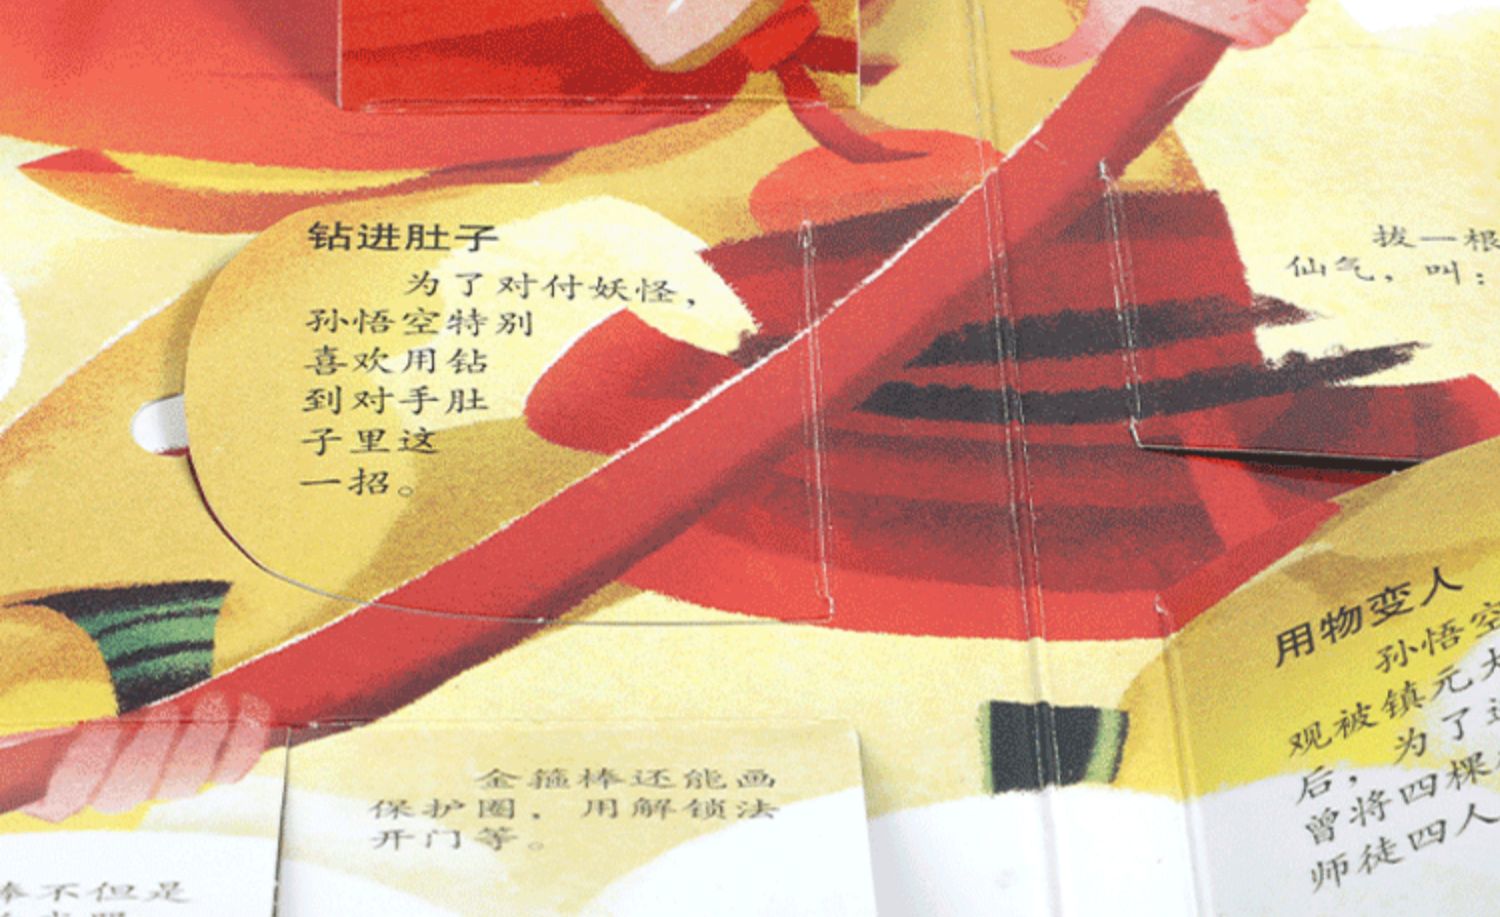 钻进肚子
为了对付妖怪，
孙悟空特别
喜欢用钻
到对手肚
子里这
一招。
拔一根
仙气，叫：
用物变人
孙悟空
观被镇元大
后，为了这
曾将四棵
师徒四人
金箍棒还能画
保护圈，用解锁法
开门等。
棒不但是